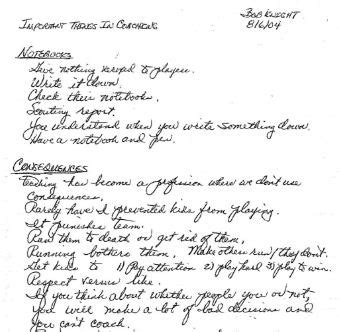 BOB KNIGHT
IMPORTANT THINGS IN COACHING
8/6/04
NOTEBOOKS
Give nothing xeroxed to players.
Write it down.
Check their notebooks.
Scouting report.
You understand when you write something down.
Have a notebook and pen.
CONSEQUENCES
Teaching has become a profession where we don't use
consequences.
Rarely have I prevented kids from playing.
It punishes team.
Run them to death or get rid of them.
Running bothers them, Make others run/they don't.
Get kids to 1) Pay attention 2) play hard 3) play to win.
Respect versus like.
If you think about whether people you or not,
you will make a lot of bad decisions and
you can't coach.